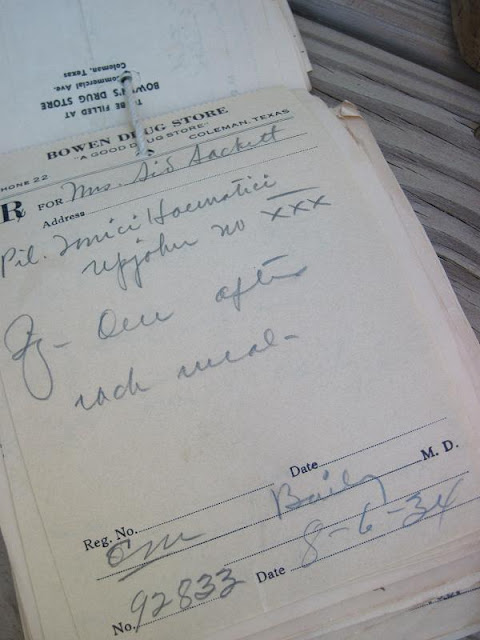 TO BE FILLED AT
BOWEN'S DRUG STORE
Commercial Ave.
Coleman, Texas
BOWEN DRUG STORE
"A GOOD DRUG STORE"
COLEMAN, TEXAS
PHONE 22
Rx FOR Mrs. Sid Sackett
Address
Pil. Tonici Haematici
upjohn no XXX
Sig- One after
each meal-
Date
Reg. No. Baily M. D.
No. 92833 Date 8-6-34